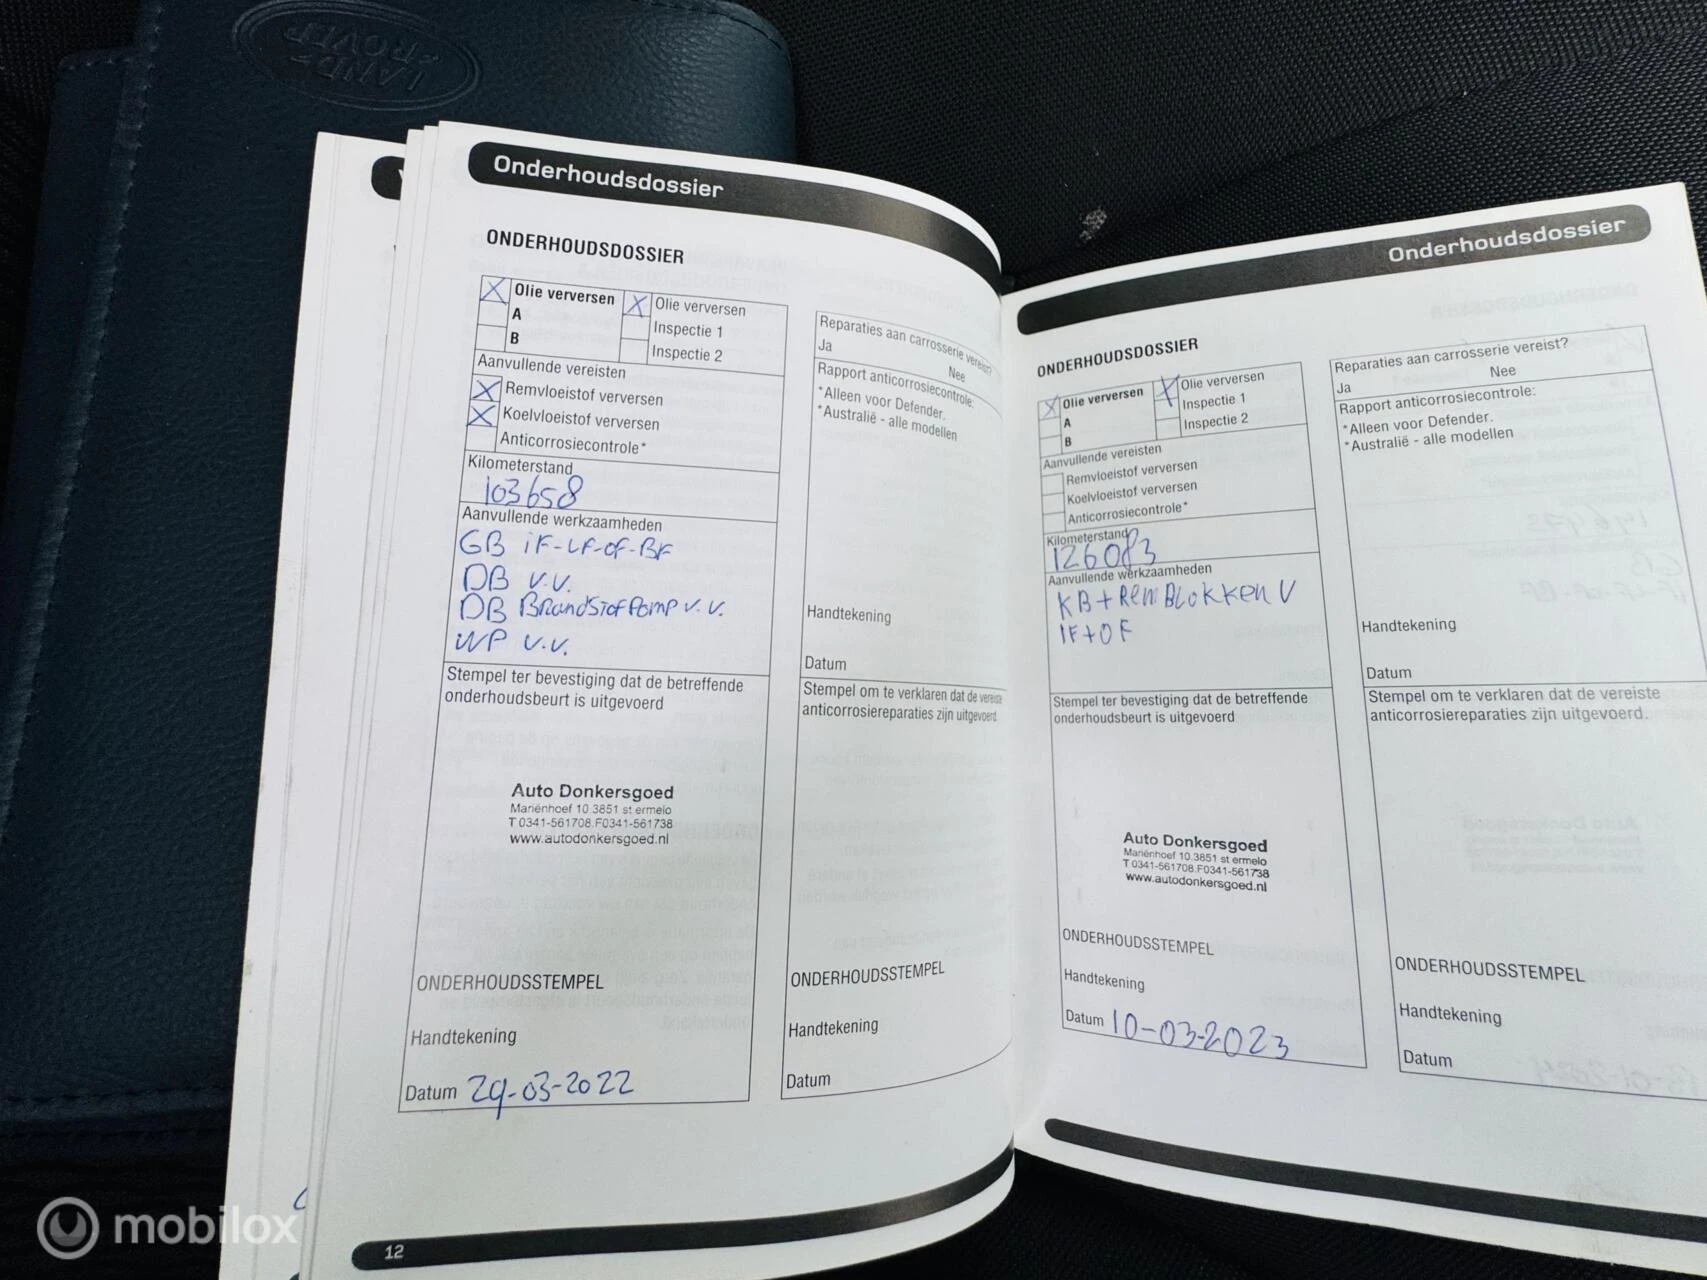 LAND-
ROVER
Onderhoudsdossier
ONDERHOUDSDOSSIER
X Olie verversen
A
B
X Olie verversen
Inspectie 1
Inspectie 2
Aanvullende vereisten
X Remvloeistof verversen
X Koelvloeistof verversen
Anticorrosiecontrole*
Kilometerstand
103658
Aanvullende werkzaamheden
GB iF-LF-oF-BF
DB v.v.
DB Brandstofpomp v.v.
WP v.v.
Stempel ter bevestiging dat de betreffende
onderhoudsbeurt is uitgevoerd
Auto Donkersgoed
Mariënhoef 10.3851 st ermelo
T 0341-561708.F0341-561738
www.autodonkersgoed.nl
ONDERHOUDSSTEMPEL
Handtekening
Datum 29-03-2022
12
Reparaties aan carrosserie vereist?
Ja Nee
Rapport anticorrosiecontrole:
*Alleen voor Defender.
*Australië - alle modellen
Handtekening
Datum
Stempel om te verklaren dat de vereiste
anticorrosiereparaties zijn uitgevoerd.
ONDERHOUDSSTEMPEL
Handtekening
Datum
Onderhoudsdossier
ONDERHOUDSDOSSIER
X Olie verversen
A
B
X Olie verversen
Inspectie 1
Inspectie 2
Aanvullende vereisten
Remvloeistof verversen
Koelvloeistof verversen
Anticorrosiecontrole*
Kilometerstand
126083
Aanvullende werkzaamheden
KB + Remblokken V
IF+OF
Stempel ter bevestiging dat de betreffende
onderhoudsbeurt is uitgevoerd
Auto Donkersgoed
Mariënhoef 10.3851 st ermelo
T 0341-561708.F0341-561738
www.autodonkersgoed.nl
ONDERHOUDSSTEMPEL
Handtekening
Datum 10-03-2023
Reparaties aan carrosserie vereist?
Ja Nee
Rapport anticorrosiecontrole:
*Alleen voor Defender.
*Australië - alle modellen
Handtekening
Datum
Stempel om te verklaren dat de vereiste
anticorrosiereparaties zijn uitgevoerd.
ONDERHOUDSSTEMPEL
Handtekening
Datum
mobilox